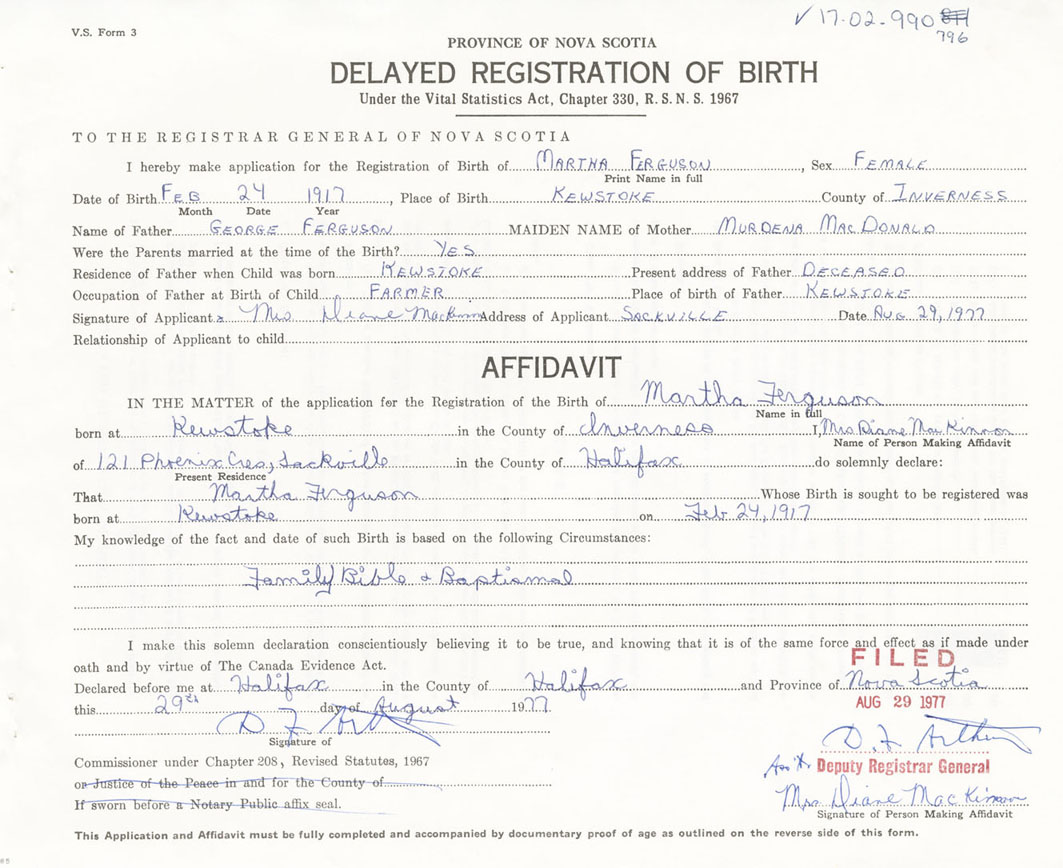 V.S. Form 3
✓ 17-02-990
796
PROVINCE OF NOVA SCOTIA
DELAYED REGISTRATION OF BIRTH
Under the Vital Statistics Act, Chapter 330, R. S. N. S. 1967
TO THE REGISTRAR GENERAL OF NOVA SCOTIA
I hereby make application for the Registration of Birth of MARTHA FERGUSON, Sex FEMALE
Print Name in full
Date of Birth FEB 24 1917, Place of Birth KEWSTOKE County of INVERNESS
Month Date Year
Name of Father GEORGE FERGUSON MAIDEN NAME of Mother MURDENA MACDONALD
Were the Parents married at the time of the Birth? YES
Residence of Father when Child was born KEWSTOKE Present address of Father DECEASED
Occupation of Father at Birth of Child FARMER Place of birth of Father KEWSTOKE
Signature of Applicant Mrs Diane MacKinnon Address of Applicant SACKVILLE Date AUG 29, 1977
Relationship of Applicant to child
AFFIDAVIT
IN THE MATTER of the application for the Registration of the Birth of Martha Ferguson
Name in full
born at Kewstoke in the County of Inverness I, Mrs Diane MacKinnon
Name of Person Making Affidavit
of 121 Phoenix Cres, Sackville in the County of Halifax do solemnly declare:
Present Residence
That Martha Ferguson Whose Birth is sought to be registered was
born at Kewstoke on Feb 24, 1917
My knowledge of the fact and date of such Birth is based on the following Circumstances:
Family Bible & Baptismal
I make this solemn declaration conscientiously believing it to be true, and knowing that it is of the same force and effect as if made under
oath and by virtue of The Canada Evidence Act.
FILED
Declared before me at Halifax in the County of Halifax and Province of Nova Scotia
this 29th day of August 1977
AUG 29 1977
D. F. Arthur
Signature of
D. F. Arthur
Commissioner under Chapter 208, Revised Statutes, 1967
Ass't. Deputy Registrar General
or Justice of the Peace in and for the County of
Mrs Diane MacKinnon
If sworn before a Notary Public affix seal.
Signature of Person Making Affidavit
This Application and Affidavit must be fully completed and accompanied by documentary proof of age as outlined on the reverse side of this form.